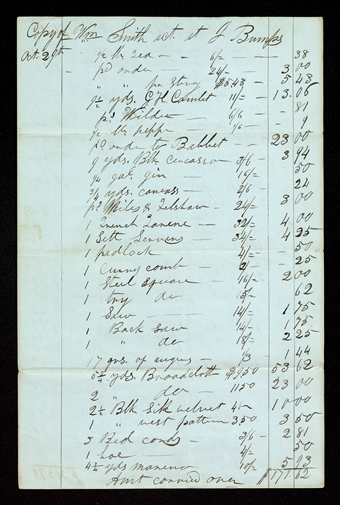 Copy of Wm Smith act. at J Bumps
Oct. 29th ½ lb Tea — 6/= — 38
pd order 24/= — 3 00
" " per Story $5.43 — 5 43
9½ yds. C H Camlet 11/= — 13.06
6/6 — 81
½ lb pepper — 9
pd order to Babbet — 23 00
9 yds. Blk 3/6 — 3 94
½ gal. gin — 16/= — 50
¾ yds. canvass — 2/6 — 22
24/= — 3 00
1 French 32/= — 4 00
1 Sett 34/= — 4 25
1 padlock 4/= — 50
1 curry comb 2/= — 25
1 Steel Square — 16/= — 2 00
1 try do 5/= — 62
1 Saw — 14/= — 1 75
1 Back Saw — 14/= — 1 75
1 " do — 18/= — 2 25
17 grs. of /3 — 1 44
5½ yds. Broadcloth $9.50 — 53 62
2 " do 11.50 — 23 00
2½ Blk Silk velvet 4.— 10 00
1 " vest pattern 3.50 — 3 50
3 Bed cords — 2 81
1 hoe — 4/= — 50
4¾ yds mareno 10/= — 5 93
Amt carried over $171.62